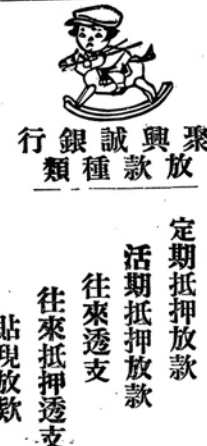 聚興誠銀行
放款種類
定期抵押放款
活期抵押放款
往來透支
往來抵押透支
貼現放款